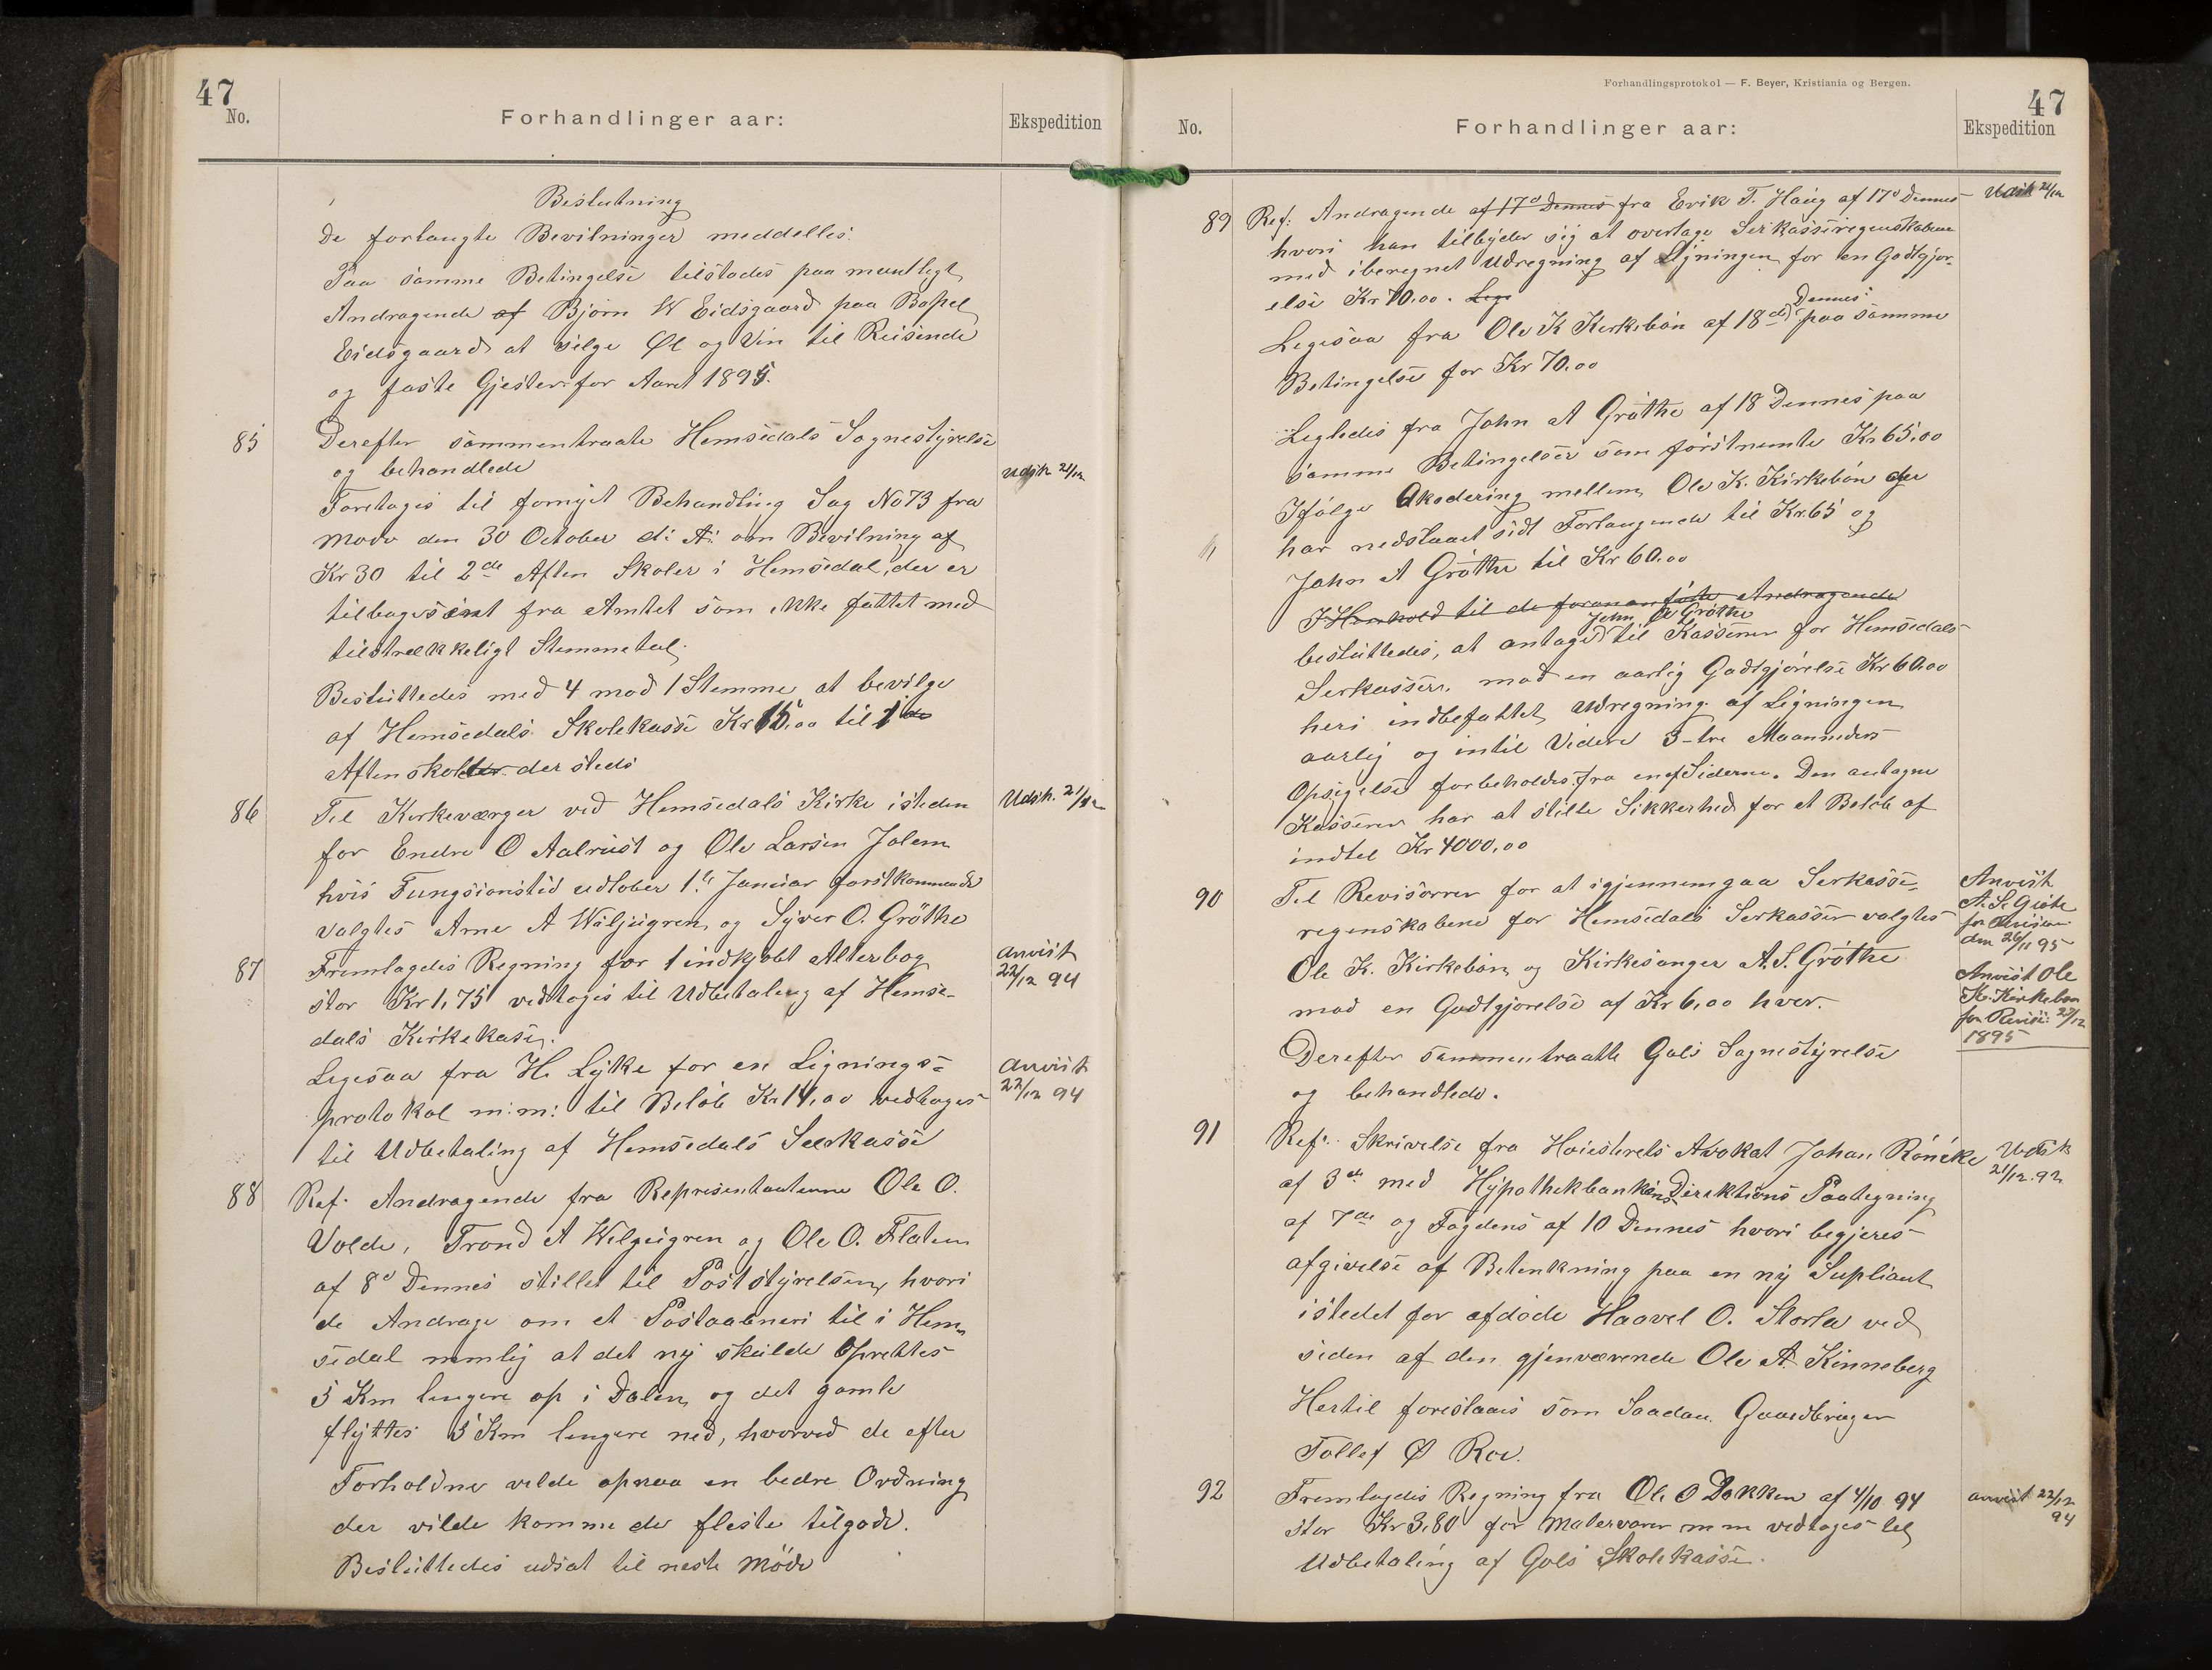 47
No.
Forhandlinger aar:
Ekspedition
Beslutning
De forlangte Bevilninger meddelles.
Paa samme Betingelse tilstodes paa muntligt
Andragende af Bjørn W Eidsgaard paa Bopel
Eidsgaard at selge Øl og Vin til Reisende
og faste Gjester for Aaret 1895.
85 Derefter sammentraate Hemsedals Sognestyrelse
og behandlede
Udsk 21/12
Foretoges til fornyet Behandling Sag No 73 fra
Møde den 30 October d: A: om Bevilning af
Kr 30 til 2de Aften Skoler i Hemsedal, der er
tilbagesent fra Amtet som ikke fattet med
tilstrækkeligt Stemmetal.
Besluttedes med 4 mod 1 Stemme at bevilge
af Hemsedals Skolekasse Kr 15,00 til 1 de
Aftenskole der steds
86 Til Kirkeværger ved Hemsedals Kirke isteden
Udsk. 21/12
for Endre O Aalrust og Ole Larsen Jolem
hvis Fungsionstid udløber 1ste Januar førstkommende
valgtes Arne A Wøljugren og Syver O. Grøthe
87 Fremlagdes Regning for 1 indkjøbt Alterbog
Anvist
22/12 94
stor Kr 1,75 vedtoges til Udbetaling af Hemse-
dals Kirkekase.
Legesaa fra H. Lyke for en Lignings=
Anvist
22/12 94
protokol m:m: til Beløb Kr 14,00 vedtoges
til Udbetaling af Hemsedals Serkasse
88 Ref. Andragende fra Representanterne Ole O.
Volde, Trond A Welgugren og Ole O. Flaten
af 8d Dennes stillet til Poststyrelsen, hvori
de Andrage om et Postaabneri til i Hem
sedal nemlig at det ny skulde Oprettes
5 Km lengere op i Dalen og det gamle
flyttes 5 Km lengere ned, hvorved de efter
Forholdne vilde opnaa en bedre Ordning
der vilde komme de fleste tilgode.
Besluttedes udsat til neste Møde
Forhandlingsprotokol — F. Beyer, Kristiania og Bergen.
47
No.
Forhandlinger aar:
Ekspedition
89 Ref: Andragende af 17d Dennes fra Erik T. Haug af 17d Dennes
Udsk 21/12
hvori han tilbyder sig at overtage Serkasseregenskabene
med iberegnet Udregning af Ligningen for en Godtgjør-
else Kr 70.00. Lege
Legesaa fra Ole K Kirkebøn af 18de Dennes: paa samme
Betingelse for Kr 70.00
Legledes fra John A Grøthe af 18 Dennes paa
samme Betingelser som førstnemte Kr 65,00
Ifølge Akodering mellem Ole K. Kirkebøn der
har nedslaaet sidt Forlangende til Kr. 65 og
John A Grøthe til Kr 60.00
I Henhold til de forananførte Andragende
besluttedes, at antages John A Grøthe til Kasserer for Hemsedals
Serkasser. mod en aarlig Godtgjørelse Kr 60.00
heri indbefattet Udregning af Ligningen
aarlig og intil Videre 3-tre Maanneders
Opsigelse forbeholdes fra en af Siderne. Den antagne
Kasserer har at stille Sikkerhed for et Beløb af
indtil Kr 4000,00
90 Til Revisorrer for at igjennemgaa Serkasse=
regenskabene for Hemsedals Serkasser valgtes
Ole K. Kirkebøn og Kirkesanger A. S. Grøthe
mod en Godtgjørelse af Kr 6,00 hver.
Anvist
A. S. Grøte
for Revision
den 26/11 95
Anvist Ole
K. Kirkebøn
for Revisi: 23/12
1895
Derefter sammentraatte Gols Sognestyrelse
og behandlede.
91 Ref: Skrivelse fra Høiesterets Avokat Johan Röncke
Udsk
21/12. 92
af 3de med Hypothekbankens Direktions Paategning
af 7de og Fogdens af 10 Dennes hvori begjeres
afgivelse af Betenkning paa en ny Supliant
istedet for afdøde Haavel O. Storla ved
siden af den gjenværende Ole A. Kinneberg
Hertil foreslaaes som Saadan Gaardbruger
Tollef Ø Roe.
92 Fremlagdes Regning fra Ole O Dokken af 4/10 94
anvist 22/12
94
stor Kr 3,80 for Malervarer m m vedtoges til
Udbetaling af Gols Skolekasse.